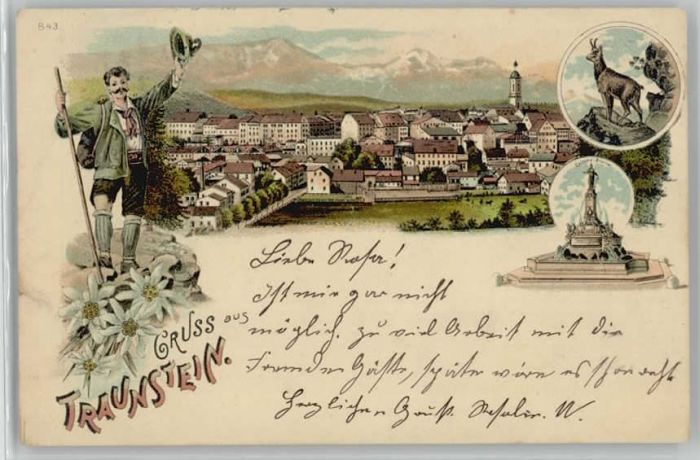 843
Liebe Rosa!
Ist mir gar nicht
möglich, zu viel Arbeit mit die
Fremden Gäste, später wäre es schon recht
Herzlichen Gruß. W.
GRUSS AUS
TRAUNSTEIN.